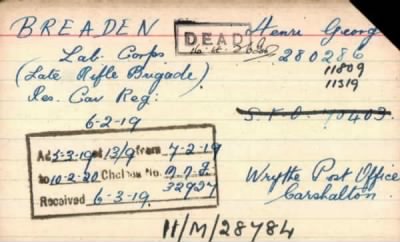 BREADEN
DEAD
Henri George
Lab. Corps
280286
(Late Rifle Brigade)
11809
11319
Res. Cav Reg:
6-2-19
Ad 5-3-19 at 13/9 from 7-2-19
to 10-2-20 Chelsea No.
Received 6-3-19. 32927
Wrythe Post Office
Carshalton.
H/M/28784